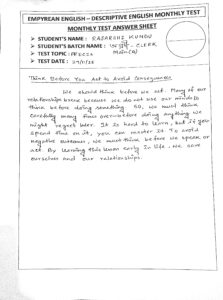 EMPYREAN ENGLISH – DESCRIPTIVE ENGLISH MONTHLY TEST
MONTHLY TEST ANSWER SHEET
➤ STUDENT'S NAME : RAJARSHI KUNDU
➤ STUDENT'S BATCH NAME : CLERK
➤ TEST TOPIC : PRECIS
➤ TEST DATE :
Think Before You Act to Avoid Consequences
We should think before we act. Many of our
relationships break because we do not use our minds to
think before doing something. So, we must think
carefully many times over before doing anything we
might regret later. It is hard to learn, but if you
spend time on it, you can master it. To avoid
negative outcomes, we must think before we speak or
act. By learning this lesson early in life, we save
ourselves and our relationships.